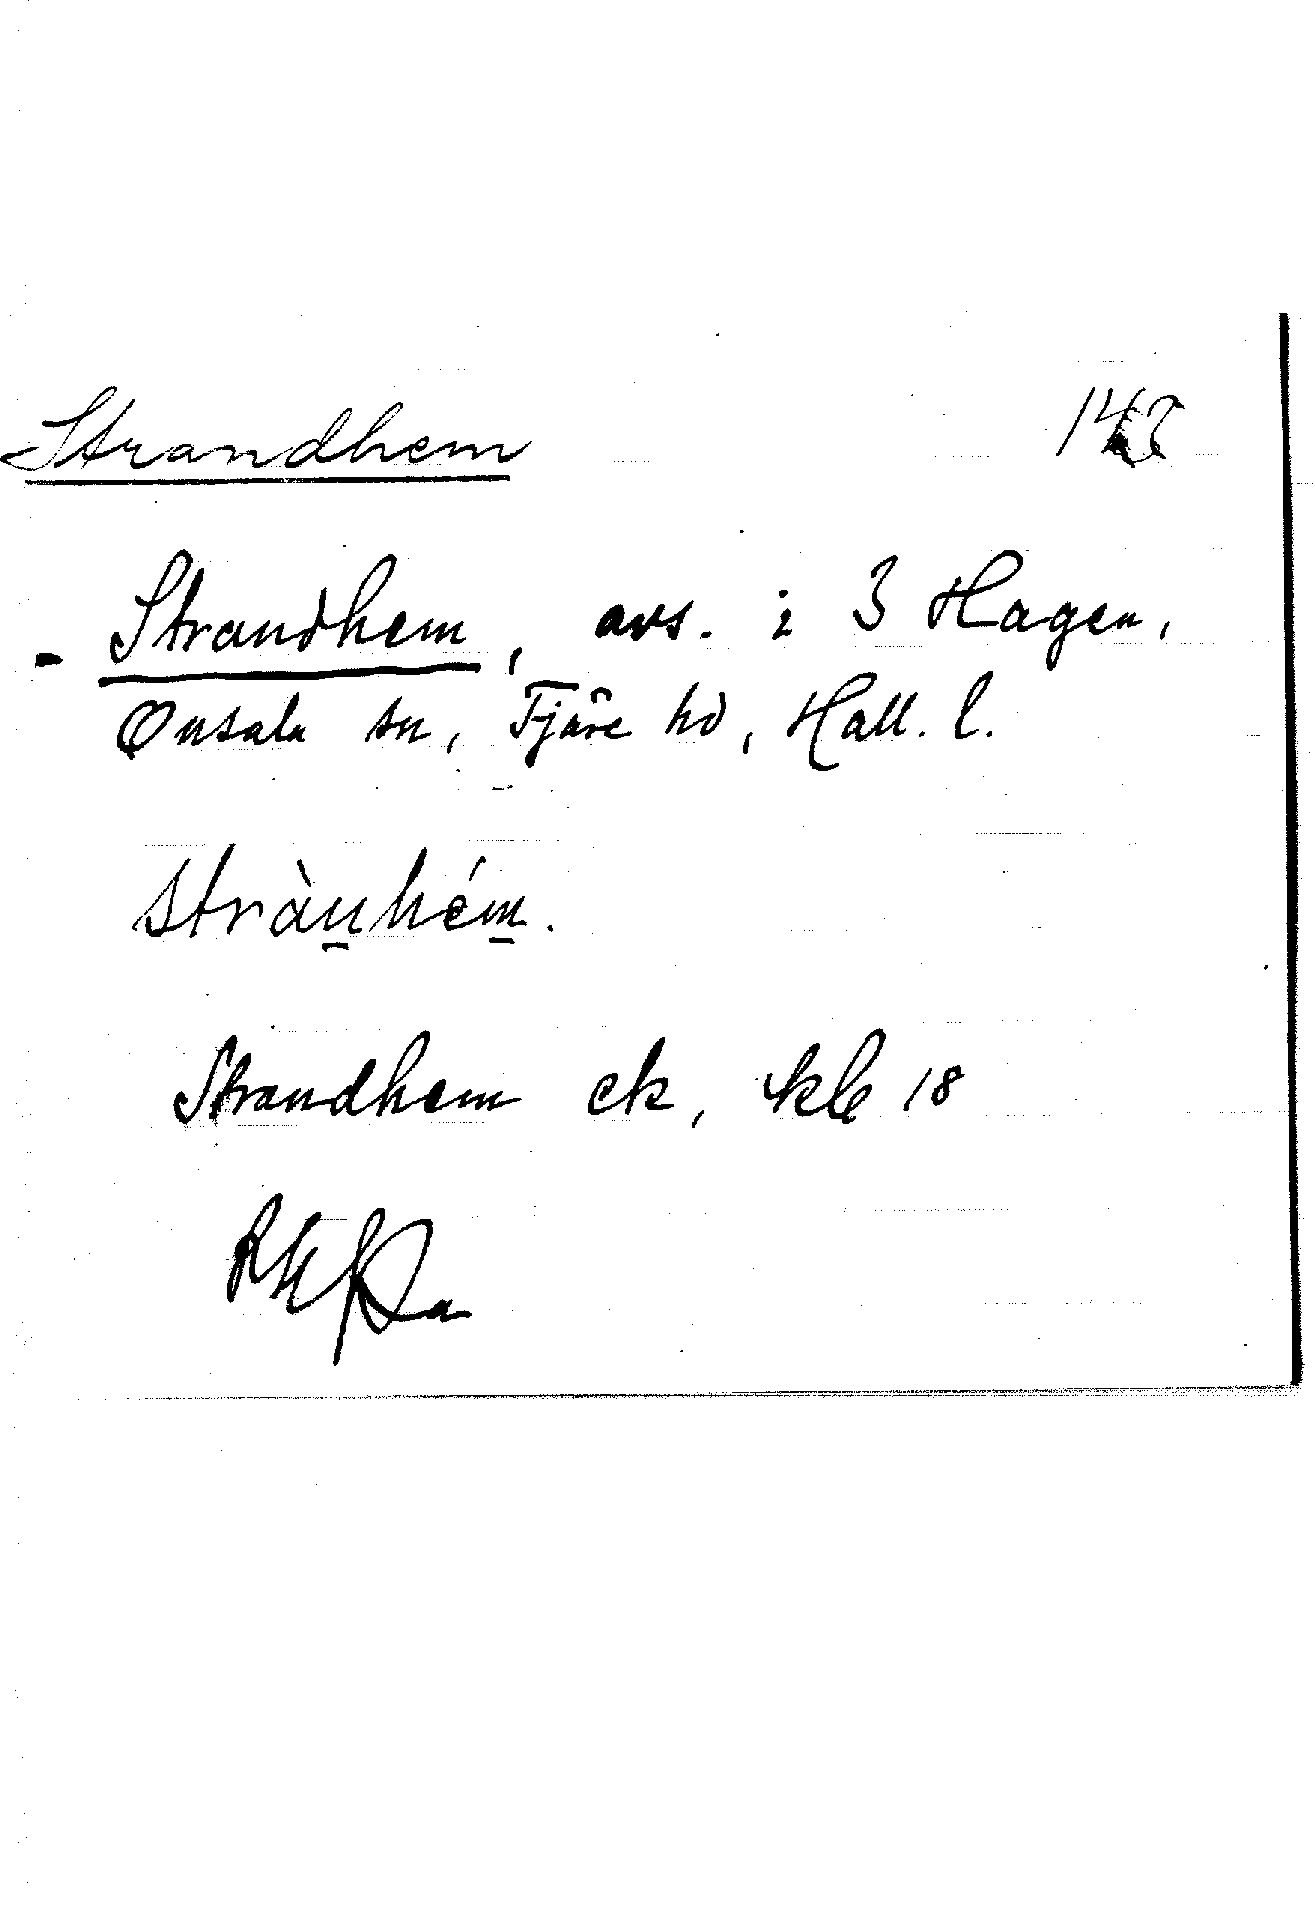 Strandhem
Strandhem, avs. i 3 Hagen,
Onsala sn, Fjäre hd, Hall. l.
stràn̲hém̲.
Strandhem ek, kb 18